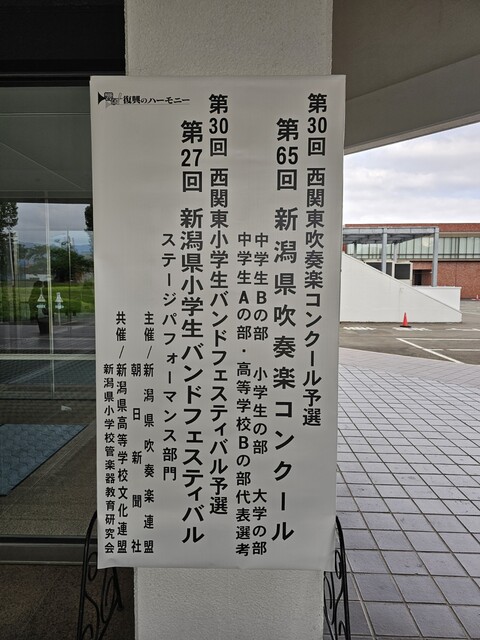 第30回 西関東吹奏楽コンクール予選
第65回 新潟県吹奏楽コンクール
中学生Bの部 小学生の部 大学の部
中学生Aの部・高等学校Bの部代表選考
第30回 西関東小学生バンドフェスティバル予選
第27回 新潟県小学生バンドフェスティバル
ステージパフォーマンス部門
主催/新潟県吹奏楽連盟
朝日新聞社
共催/新潟県高等学校文化連盟
新潟県小学校管楽器教育研究会
復興のハーモニー